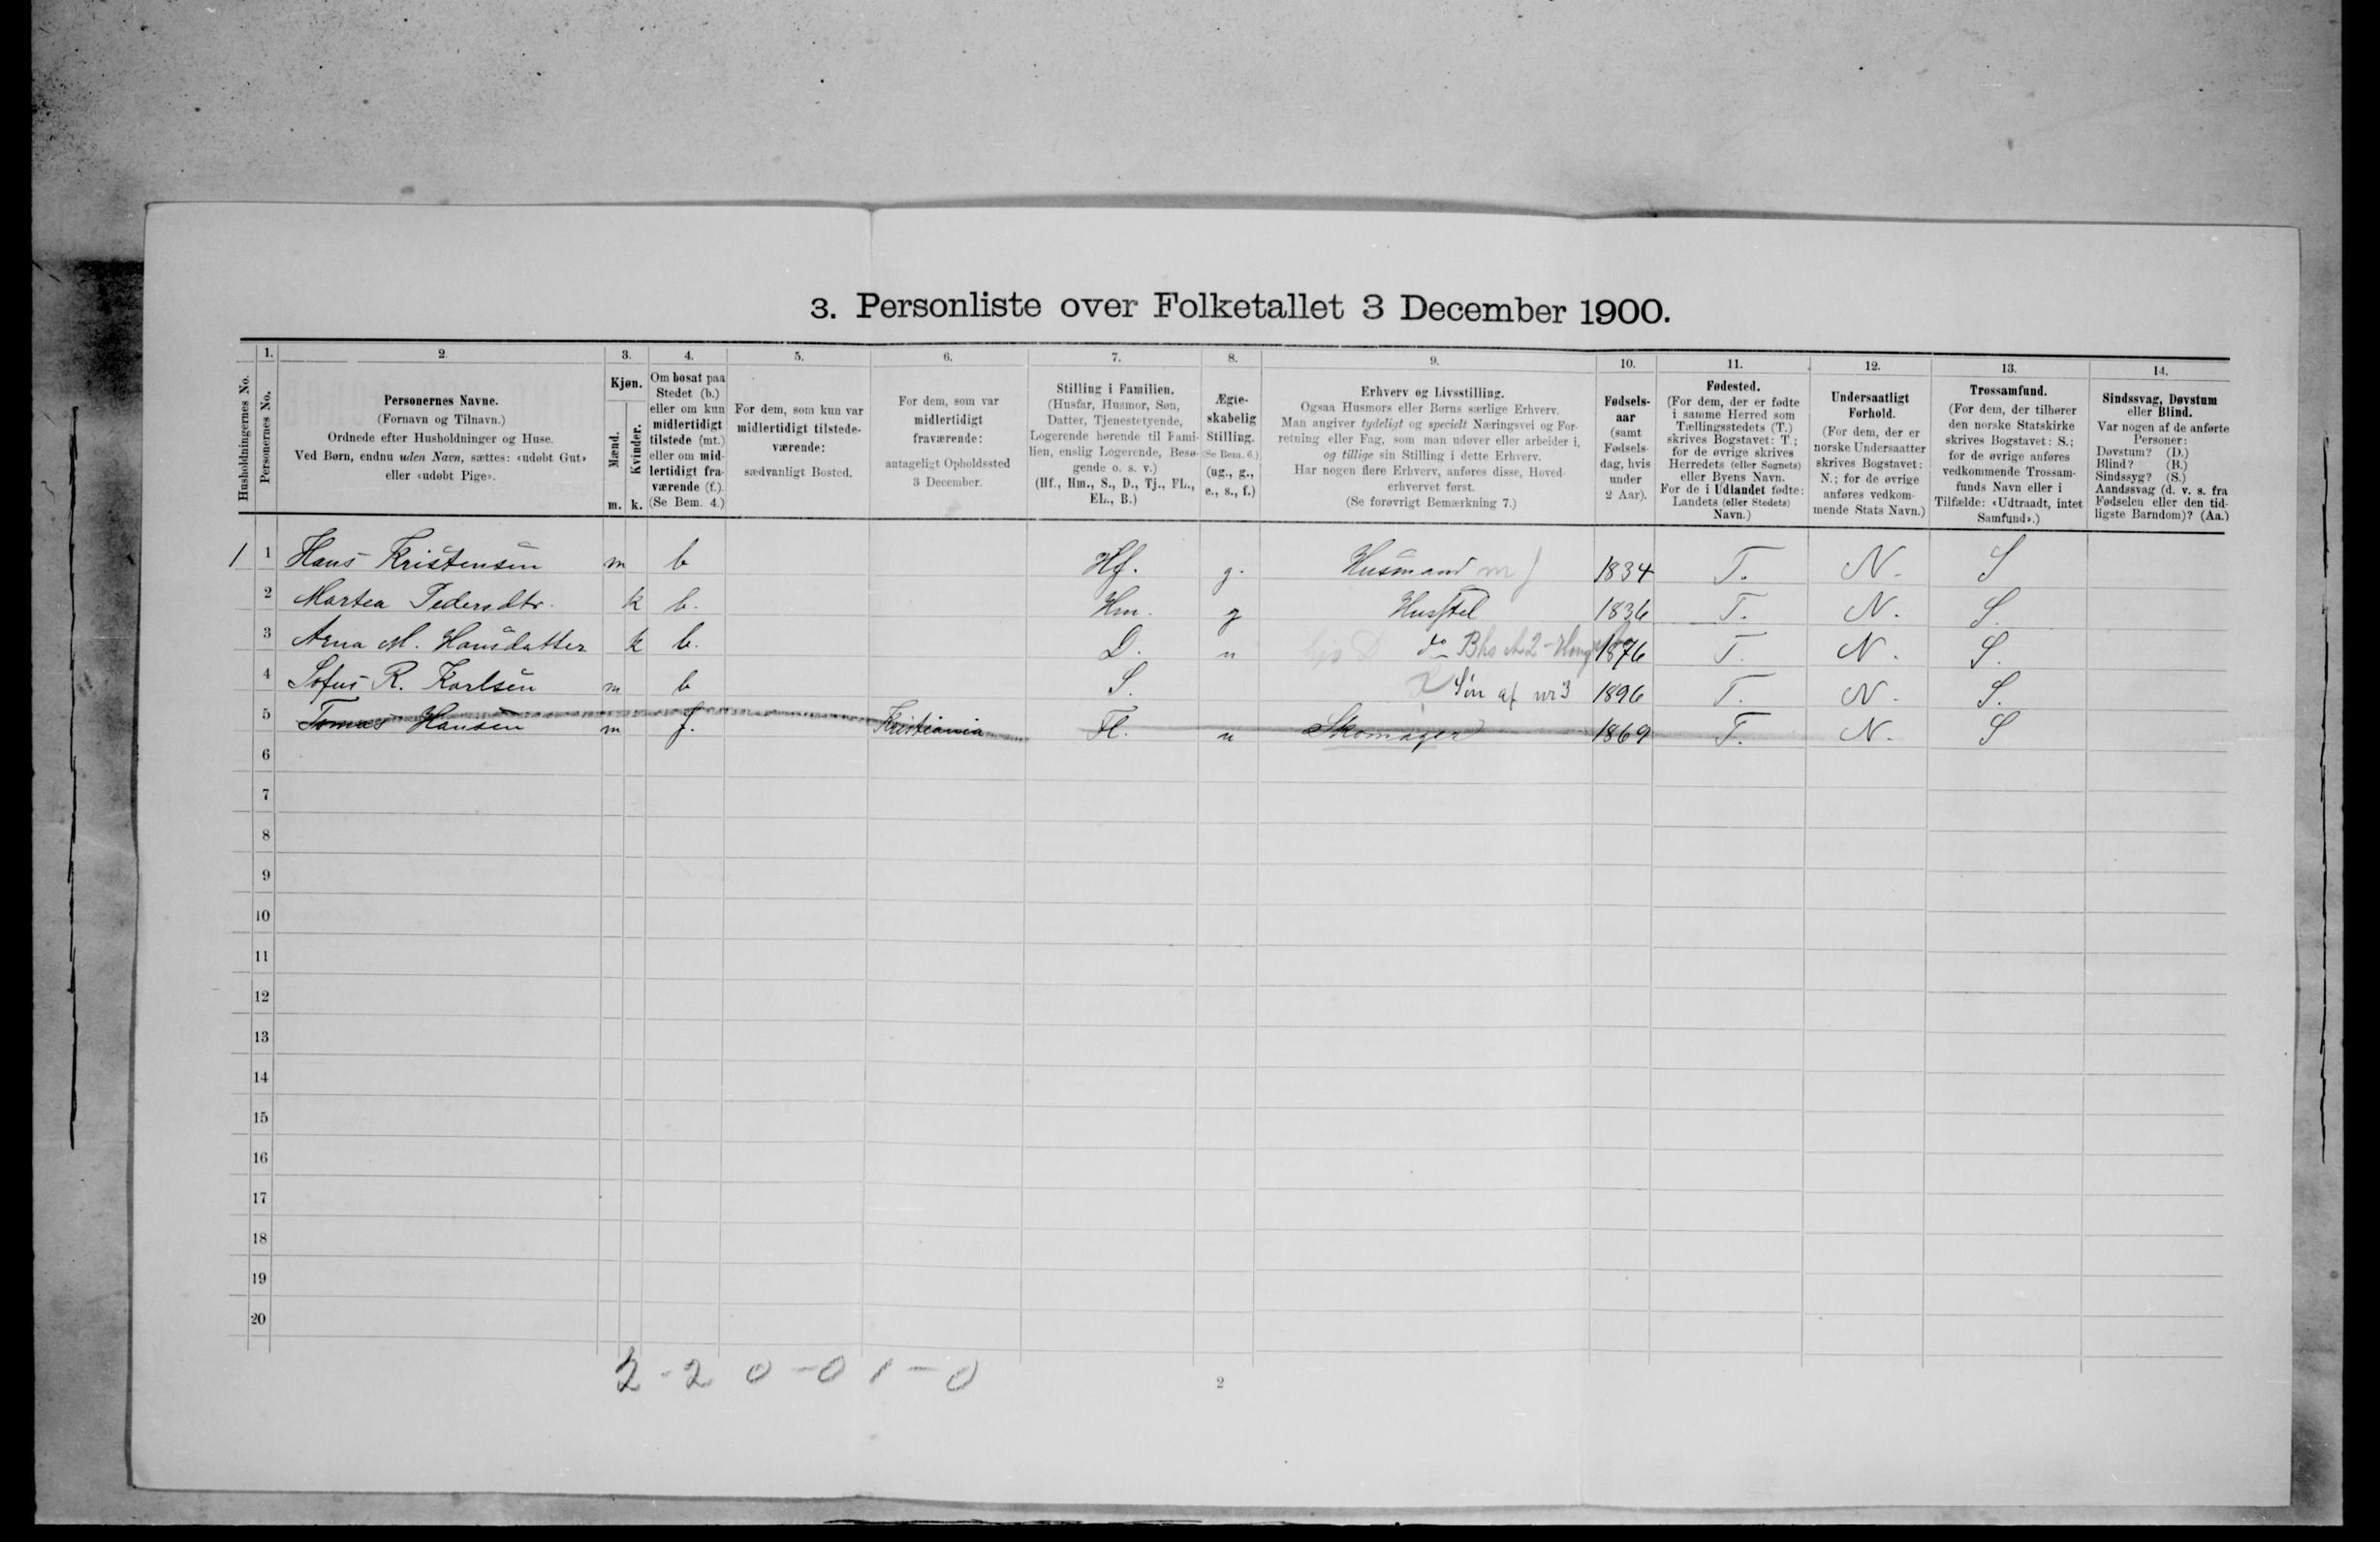 3. Personliste over Folketallet 3 December 1900.
Husholdningernes No.
1.
Personernes No.
2.
Personernes Navne.
(Fornavn og Tilnavn.)
Ordnede efter Husholdninger og Huse.
Ved Børn, endnu uden Navn, sættes: «udøbt Gut»
eller «udøbt Pige».
3.
Kjøn.
Mænd.
Kvinder.
m. k.
4.
Om bosat paa
Stedet (b.)
eller om kun
midlertidigt
tilstede (mt.)
eller om mid-
lertidigt fra-
værende (f.).
(Se Bem. 4.)
5.
For dem, som kun var
midlertidigt tilstede-
værende:
sædvanligt Bosted.
6.
For dem, som var
midlertidigt
fraværende:
antageligt Opholdssted
3 December.
7.
Stilling i Familien.
(Husfar, Husmor, Søn,
Datter, Tjenestetyende,
Logerende hørende til Fami-
lien, enslig Logerende, Besø-
gende o. s. v.)
(Hf., Hm., S., D., Tj., FL.,
EL., B.)
8.
Ægte-
skabelig
Stilling.
(Se Bem. 6.)
(ug., g.,
e., s., f.)
9.
Erhverv og Livsstilling.
Ogsaa Husmors eller Børns særlige Erhverv.
Man angiver tydeligt og specielt Næringsvei og For-
retning eller Fag, som man udøver eller arbeider i,
og tillige sin Stilling i dette Erhverv.
Har nogen flere Erhverv, anføres disse, Hoved-
erhvervet først.
(Se forøvrigt Bemærkning 7.)
10.
Fødsels-
aar
(samt
Fødsels-
dag, hvis
under
2 Aar).
11.
Fødested.
(For dem, der er fødte
i samme Herred som
Tællingsstedets (T.)
skrives Bogstavet: T.;
for de øvrige skrives
Herredets (eller Sognets)
eller Byens Navn.
For de i Udlandet fødte:
Landets (eller Stedets)
Navn.)
12.
Undersaatligt
Forhold.
(For dem, der er
norske Undersaatter
skrives Bogstavet:
N.; for de øvrige
anføres vedkom-
mende Stats Navn.)
13.
Trossamfund.
(For dem, der tilhører
den norske Statskirke
skrives Bogstavet: S.;
for de øvrige anføres
vedkommende Trossam-
funds Navn eller i
Tilfælde: «Udtraadt, intet
Samfund».)
14.
Sindssvag, Døvstum
eller Blind.
Var nogen af de anførte
Personer:
Døvstum? (D.)
Blind? (B.)
Sindssyg? (S.)
Aandssvag (d. v. s. fra
Fødselen eller den tid-
ligste Barndom)? (Aa.)
1 1 Hans Kristensen m b Hf. g. Husmand m f 1834 T. N. S
2 Martea Pedersdtr. k b. Hm. g Husstel 1836 T. N. S.
3 Arna M. Hansdatter k b. D. u do 1876 T. N. S.
4 Sofus R. Karlsen m b S. Søn af nr 3 1896 T. N. S.
5 Tomas Hansen m f. Kristiania Fl. u Skomager 1869 T. N. S
6
7
8
9
10
11
12
13
14
15
16
17
18
19
20
2 - 2 0 - 0 1 - 0
2